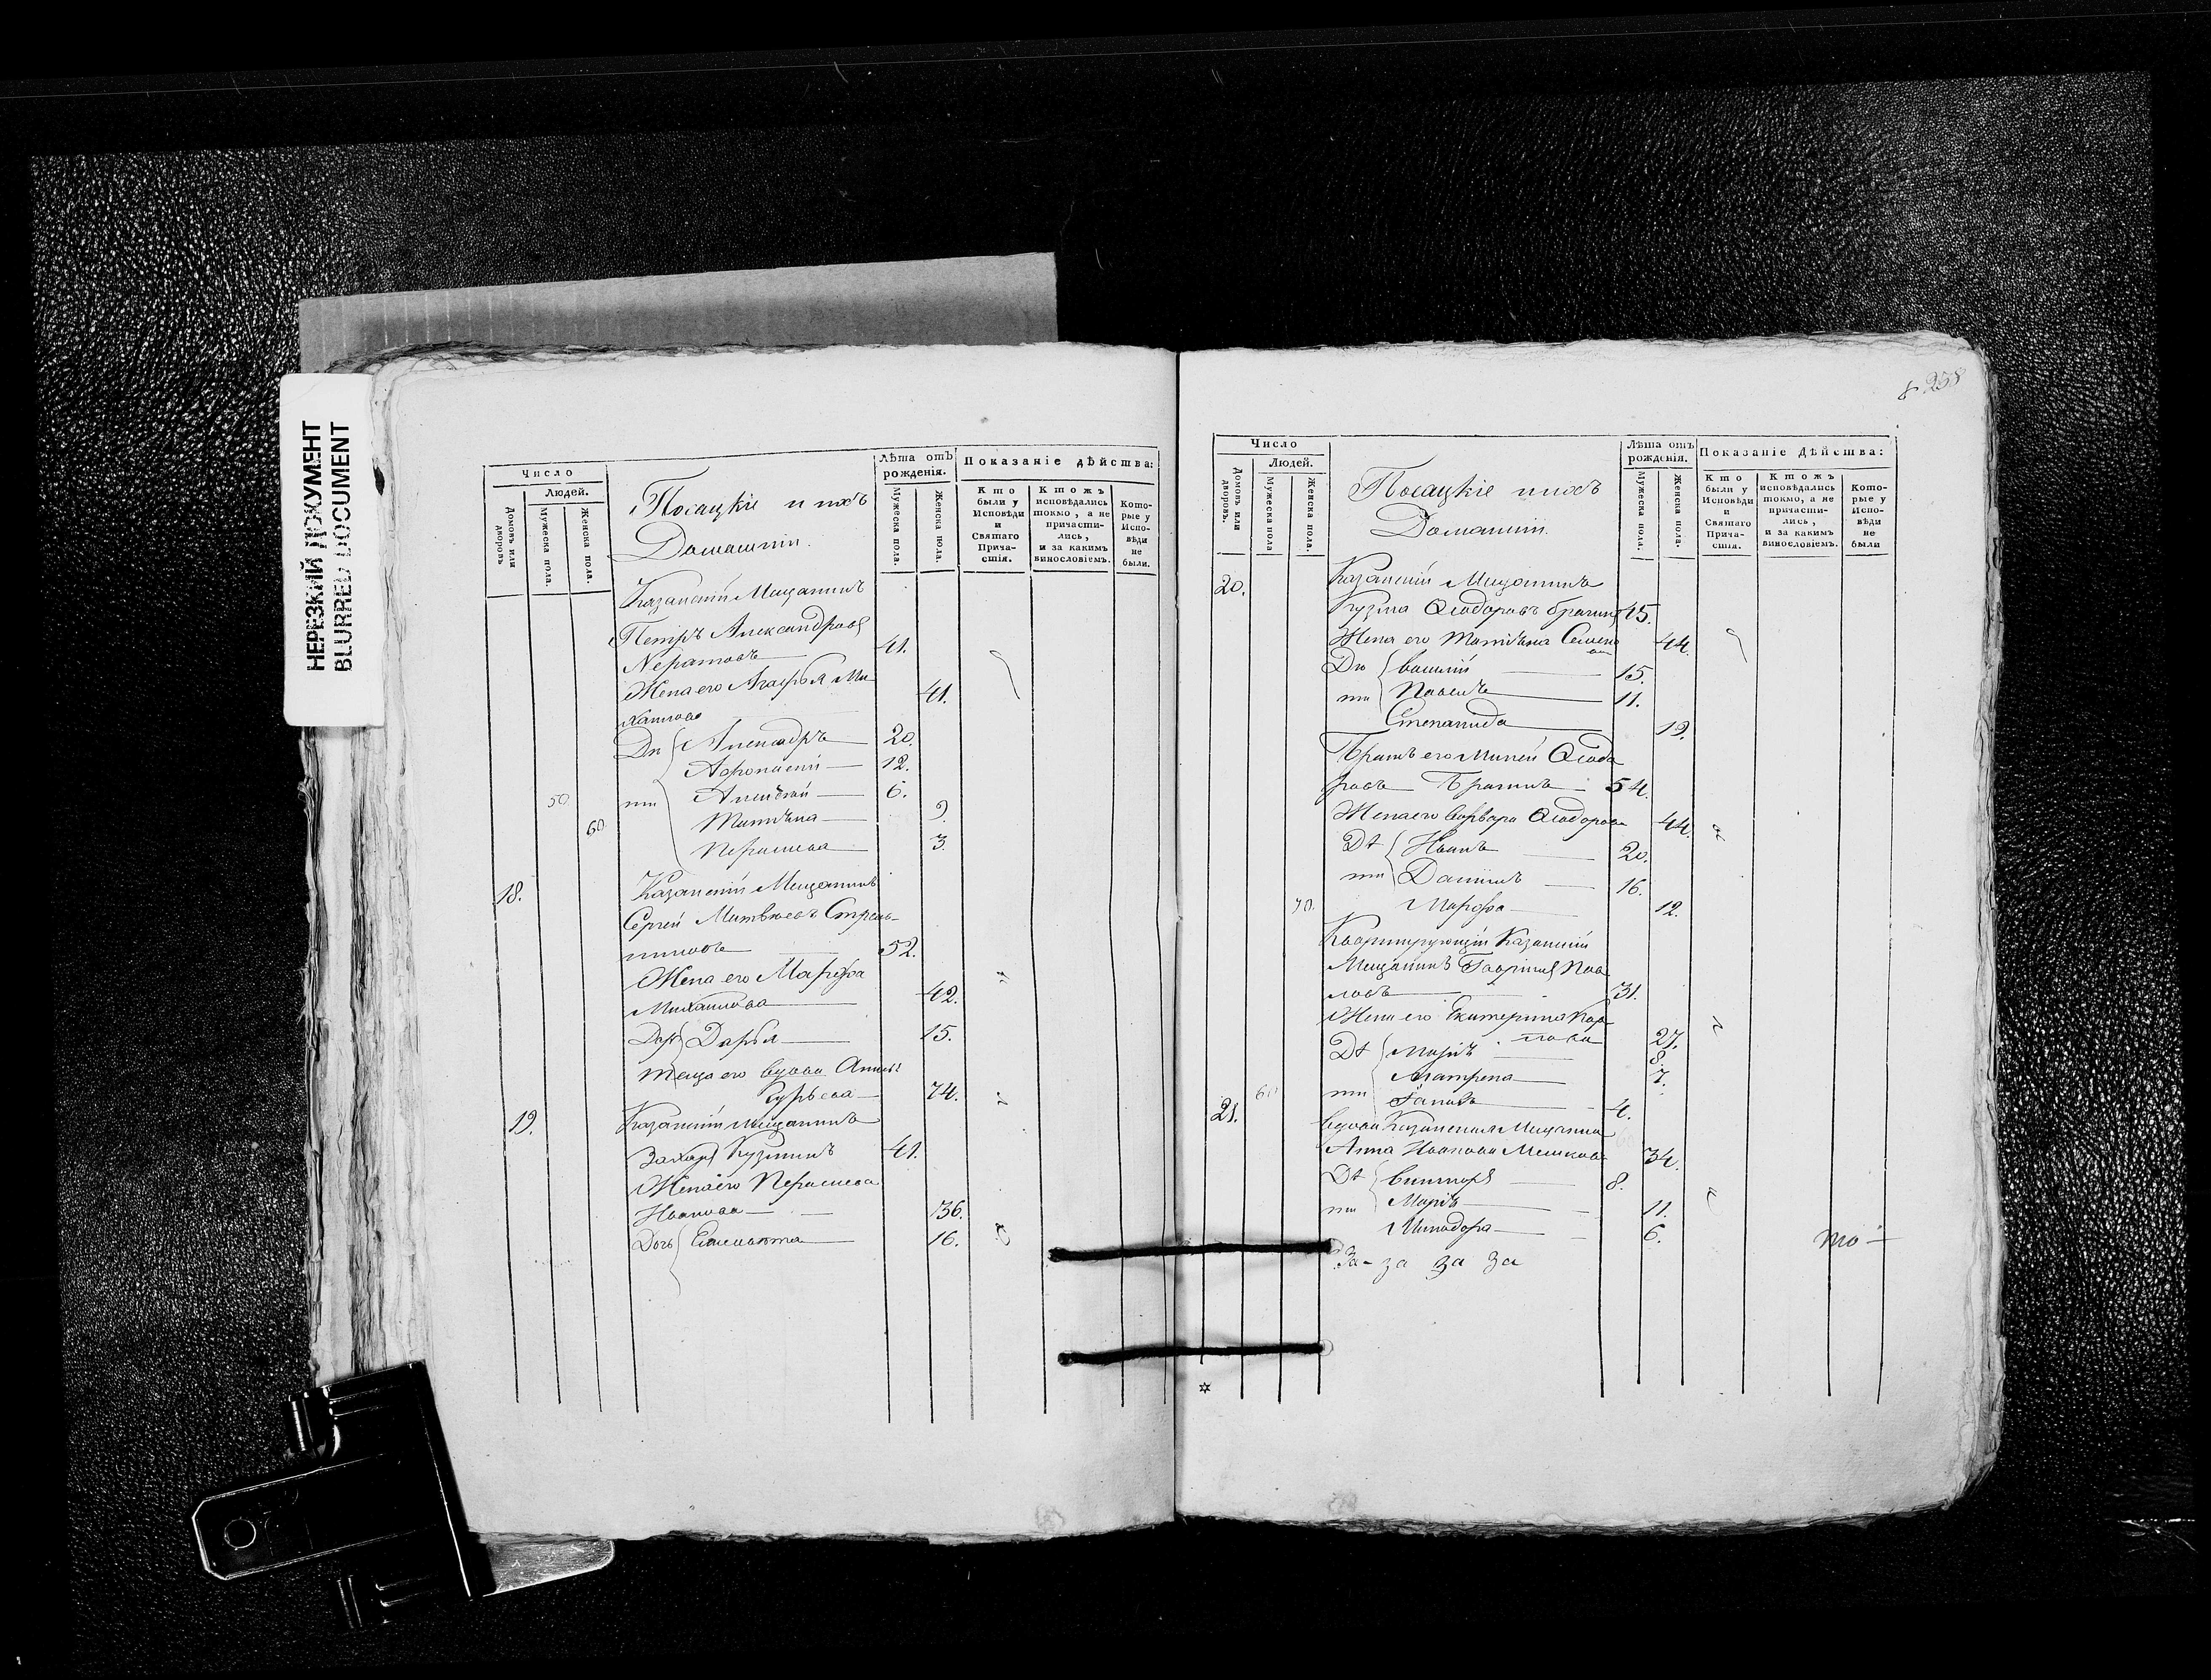 НЕРЕЗКИЙ ДОКУМЕНТ
BLURRED DOCUMENT
Число
Людей.
Домовъ или дворовъ
Мужеска пола.
Женска пола.
Посацкіе и ихъ
Домашніи.
Лѣта отъ рожденія.
Мужеска пола.
Женска пола.
Показаніе дѣйства:
Кто были у Исповѣди и Святаго Прича-стія.
Ктожъ исповѣдались токмо, а не причасти-лись, и за какимъ винословіемъ.
Кото-рые у Испо-вѣди не были.
Казанскій Мещанинъ
Петръ Александровъ
41.
Жена его Агафья Ми-
хаилова 41.
Дѣ Александръ 20.
Афонасій 12.
50 ти Алексѣй 6.
60 Татьяна 9.
Парасковья 3.
18. Казанскій Мещанинъ
Сергѣй Матвѣевъ Стрѣль-
никовъ 52.
Жена его Марфа
Михаилова 42.
Дочь Дарья 15.
Теща его вдова Анна
Гурьева 74.
19. Казанскій мещанинъ
Захаръ Кузминъ 41.
Жена его
Иванова 36.
Дочь 16.
8 238
Число
Людей.
Домовъ или дворовъ.
Мужеска пола
Женска пола.
Посацкіе и ихъ
Домашніи.
Лѣта отъ рожденія.
Мужеска пола.
Женска пола.
Показаніе Дѣйства:
Кто были у Исповѣди и Святаго Прича-стія.
Ктожъ исповѣдались токмо, а не причасти-лись, и за какимъ винословіемъ.
Кото-рые у Испо-вѣди не были
20. Казанскій Мещанинъ
Кузма Ѳадоровъ Брагинъ 45.
Жена его Татьяна Семено
ва 44.
Дѣ Василій 15.
ти Павелъ 11.
Степанида 19.
Братъ его Ѳадо
ровъ Брагинъ 54.
Жена его Варвара Ѳадорова 44.
Дѣ Иванъ 20.
ти Даниилъ 16.
70. Марфа 12.
Квартирующій Казанскій
Мещанинъ Гаврилъ Пав
ловъ 31.
Жена его Екатерина Кар
пова 27.
Дѣ Марія 8.
Матрена 7.
60 ти 4.
21. Вдова Казанская Мещанка
Анна Иванова Мешкова 34.
Дѣ Викторъ 8.
ти Марія 11.
Минодора 6.
За- за за за
то